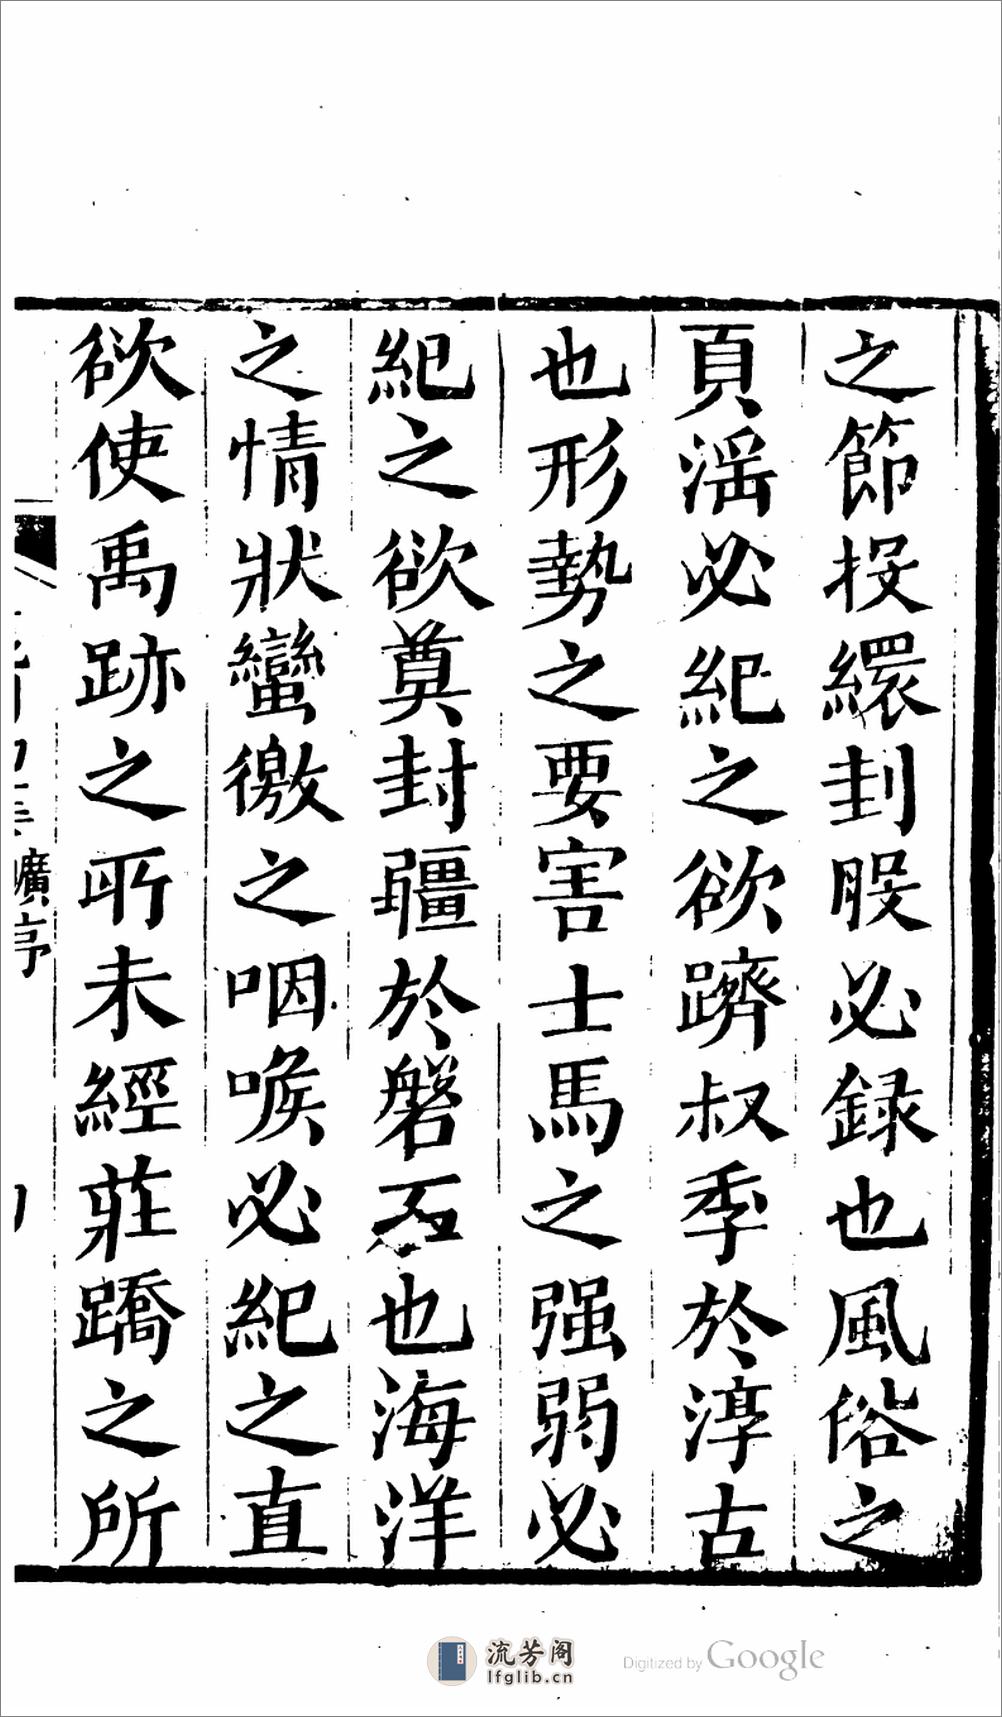 之節投繯刲股必録也風俗之
頁滛必紀之欲躋叔季於淳古
也形勢之要害士馬之强弱必
紀之欲奠封疆於磐石也海洋
之情狀蠻徼之咽喉必紀之直
欲使禹跡之所未經莊蹻之所
曠序
流芳阁
lfglib.cn
Digitized by Google